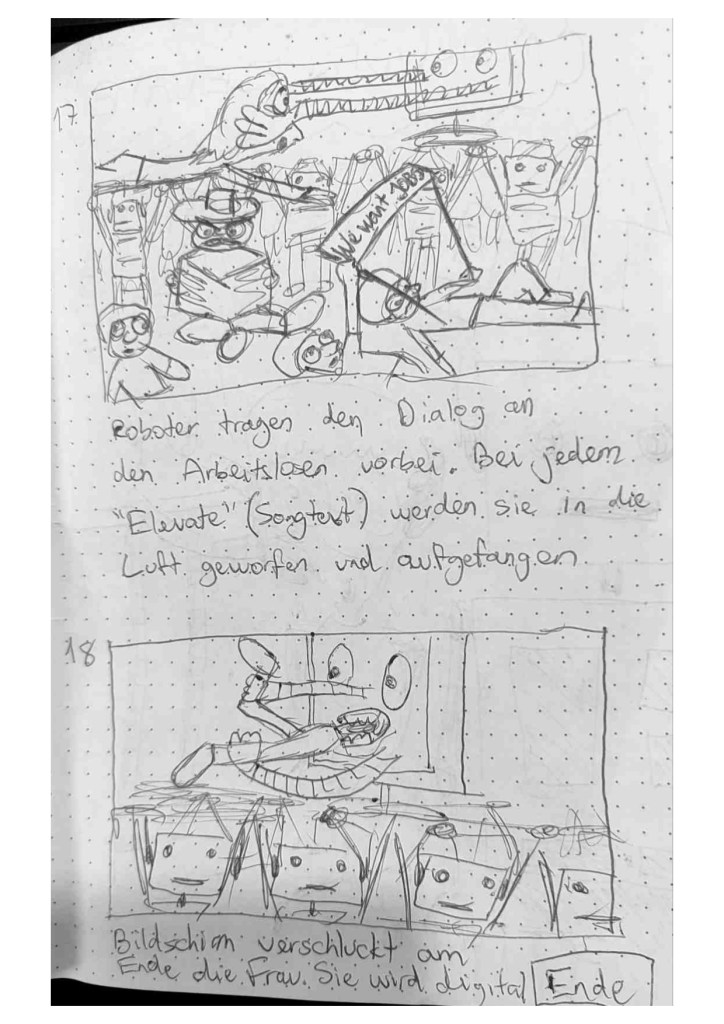 17
We want JOBS
Roboter tragen den Dialog an
den Arbeitslosen vorbei. Bei jedem
"Elevate" (Songtext) werden sie in die
Luft geworfen und aufgefangen
18
Bildschirm verschluckt am
Ende die Frau. Sie wird digital
Ende